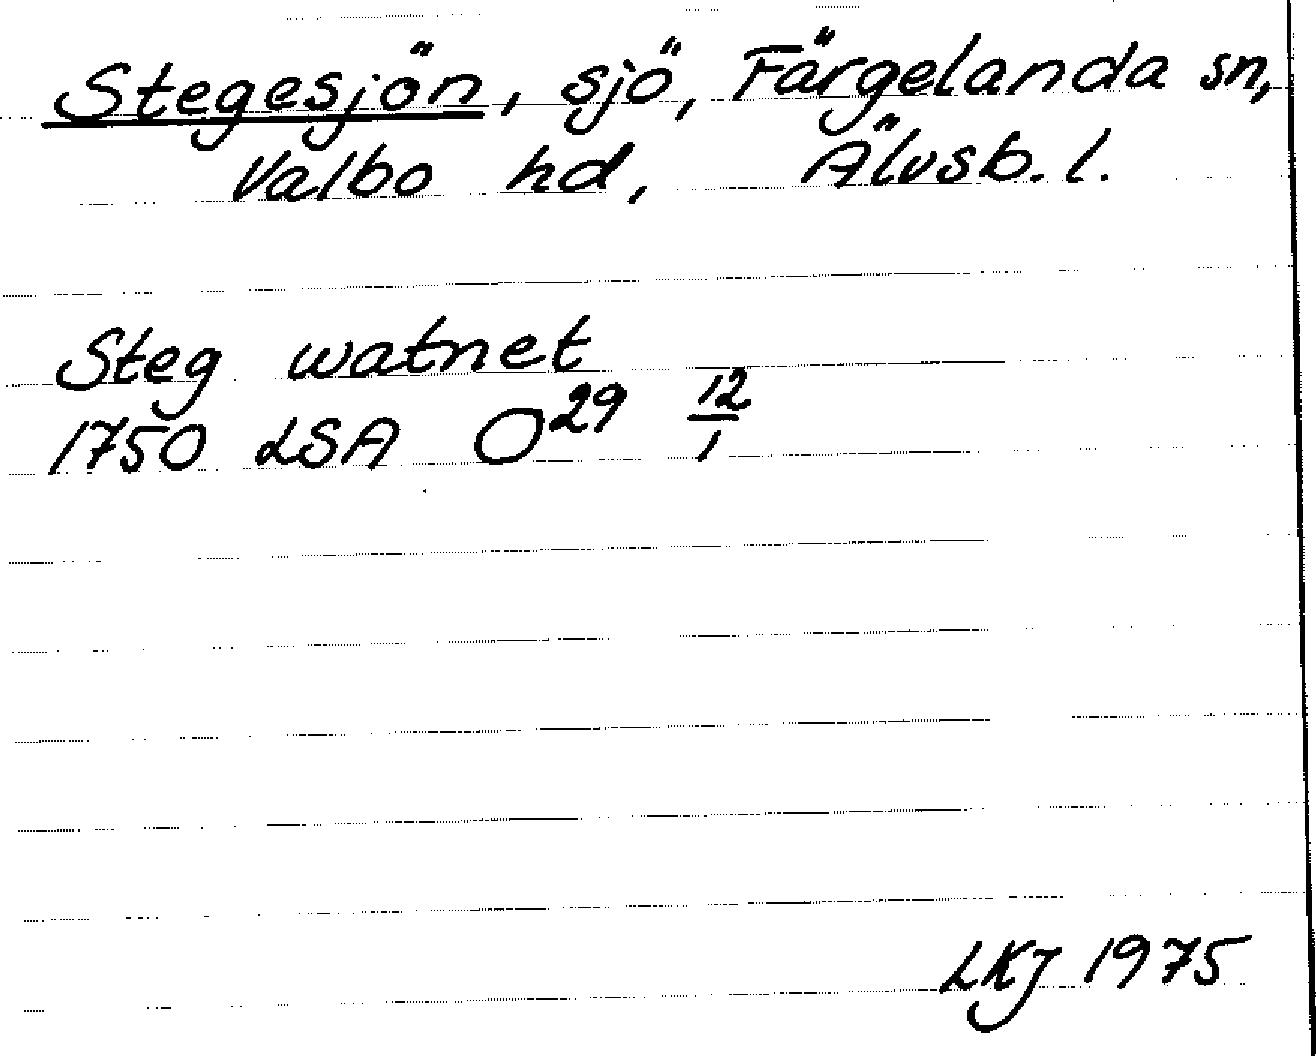 Stegesjön, sjö, Färgelanda sn,
Valbo hd, Älvsb. l.
Steg watnet
1750 LSA O29 12/1
LKJ 1975